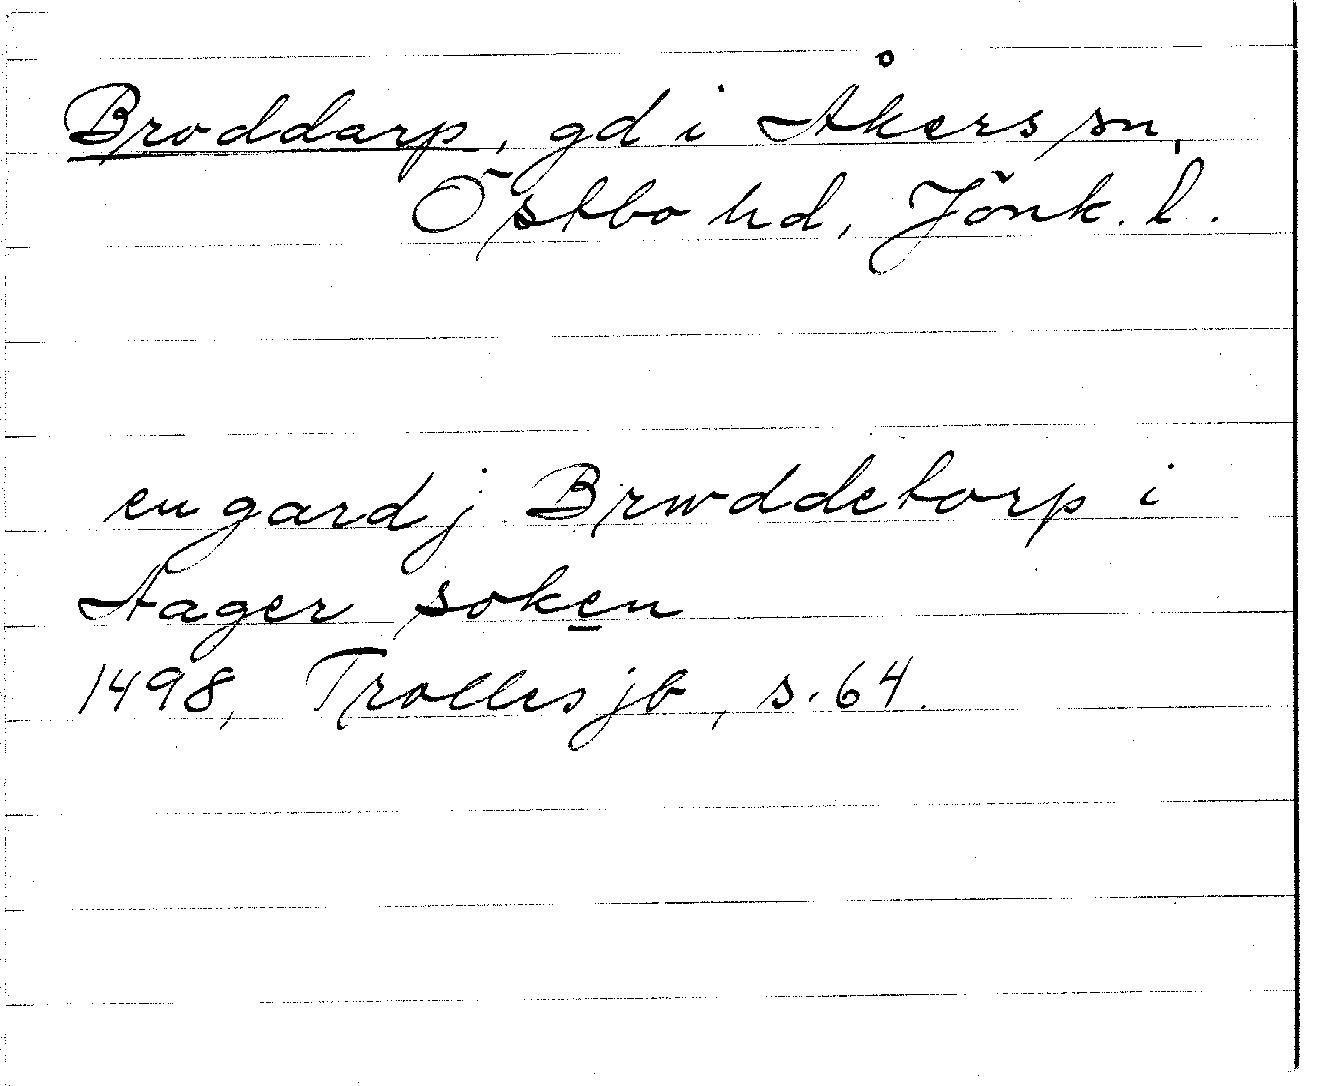 Broddarp, gd i Åkers sn,
Östbo hd, Jönk. l.
en gard j Brwddetorp i
Aager soken
1498, Trolles jb, s. 64.